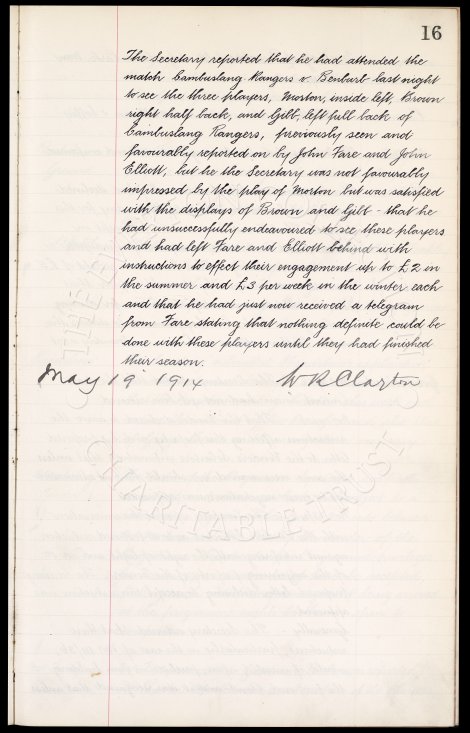 16
The Secretary reported that he had attended the
match Cambuslang Rangers v. Benburb last night
to see the three players, Morton, inside left, Brown
right half back, and Gibb, left full back of
Cambuslang Rangers, previously seen and
favourably reported on by John Fare and John
Elliott, but he the Secretary was not favourably
impressed by the play of Morton but was satisfied
with the displays of Brown and Gibb - that he
had unsuccessfully endeavoured to see these players
and had left Fare and Elliott behind with
instructions to effect their engagement up to £2 in
the summer and £3 per week in the winter each
and that he had just now received a telegram
from Fare stating that nothing definite could be
done with these players until they had finished
their season.
May 19 1914 W R Clarton
CHARITABLE TRUST